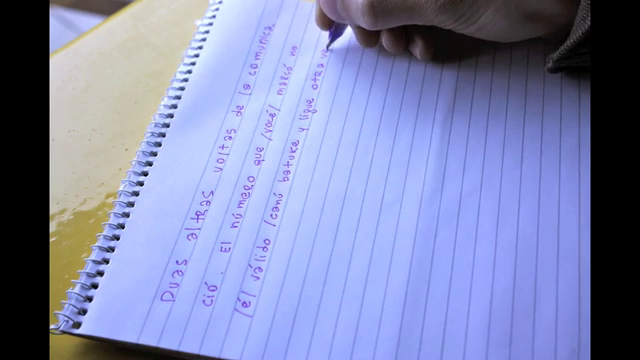 Duas altas voltas de la comunica
ció. El número que /você/ marcó no
/é/ válido /canú batuke y ligue otra v